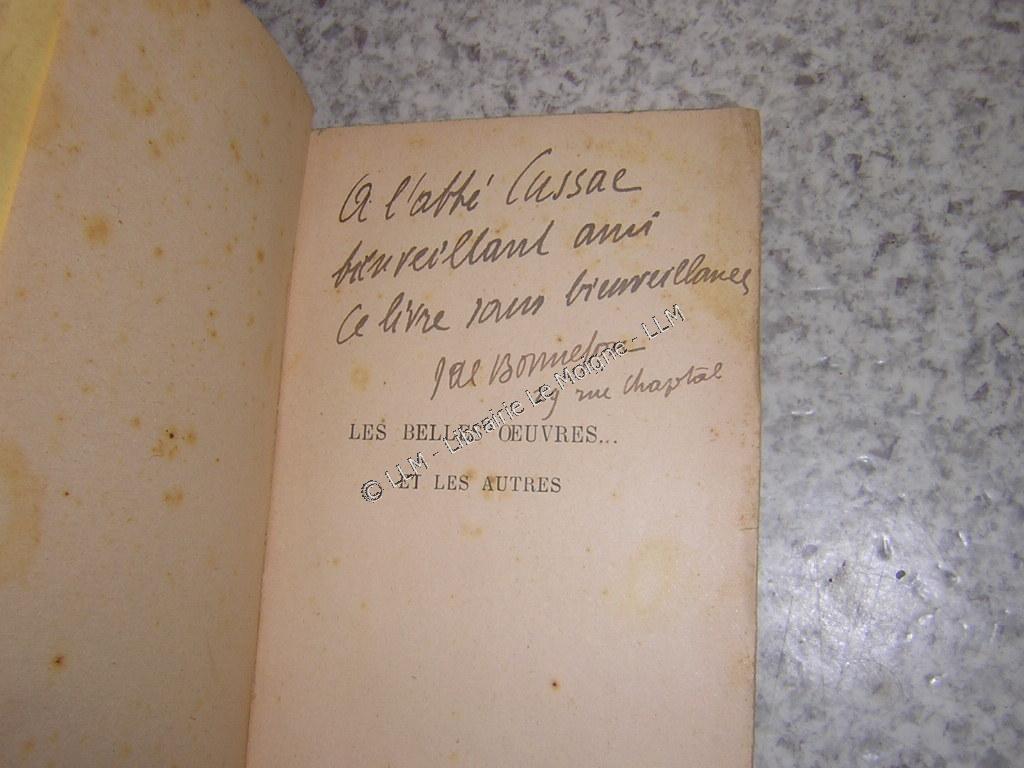 A l'abbé Cussac
bienveillant ami
ce livre sans bienveillance
J de Bonnefon
29 rue Chaptal
LES BELLES ŒUVRES...
ET LES AUTRES
© LLM - Librairie Le Moigne - LLM